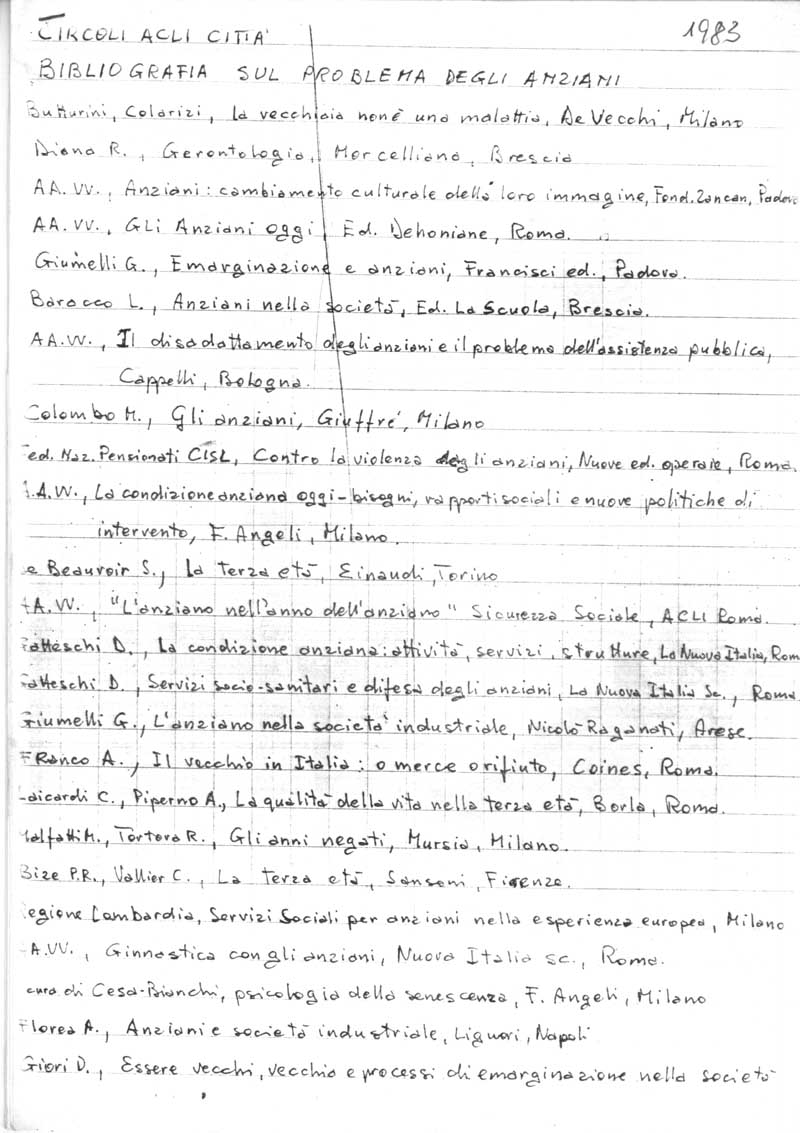 CIRCOLI ACLI CITTA' 1983
BIBLIOGRAFIA SUL PROBLEMA DEGLI ANZIANI
Butturini, Colarizi, la vecchiaia non è una malattia, De Vecchi, Milano
Diana R., Gerontologia, Morcelliana, Brescia
AA.VV., Anziani: cambiamento culturale della loro immagine, Fond. Zancan, Padova
AA.VV., Gli Anziani oggi, Ed. Dehoniane, Roma.
Giumelli G., Emarginazione e anziani, Francisci ed., Padova.
Barocco L., Anziani nella società, Ed. La Scuola, Brescia.
AA.VV., Il disadattamento degli anziani e il problema dell'assistenza pubblica,
Cappelli, Bologna.
Colombo M., Gli anziani, Giuffrè, Milano
ed. Naz. Pensionati CISL, Contro la violenza degli anziani, Nuove ed. operaie, Roma.
A.VV., La condizione anziana oggi - bisogni, rapporti sociali e nuove politiche di
intervento, F. Angeli, Milano.
e Beauvoir S., La terza età, Einaudi, Torino
A.VV., "L'anziano nell'anno dell'anziano" Sicurezza Sociale, ACLI Roma.
atteschi D., La condizione anziana: attività, servizi, strutture, La Nuova Italia, Rom
atteschi D., Servizi socio-sanitari e difesa degli anziani, La Nuova Italia Sc., Roma
Giumelli G., L'anziano nella società industriale, Nicolò Raganati, Arese.
FRanco A., Il vecchio in Italia: o merce o rifiuto, Coines, Roma.
aicardi C., Piperno A., La qualità della vita nella terza età, Borla, Roma.
Malfatti M., Tortora R., Gli anni negati, Mursia, Milano.
Bize P.R., Vallier C., La terza età, Sansoni, Firenze.
Regione Lombardia, Servizi Sociali per anziani nella esperienza europea, Milano
A.VV., Ginnastica con gli anziani, Nuova Italia sc., Roma.
cura di Cesa-Bianchi, psicologia della senescenza, F. Angeli, Milano
Florea A., Anziani e società industriale, Liguori, Napoli
Giori D., Essere vecchi, vecchia e processi di emarginazione nella società